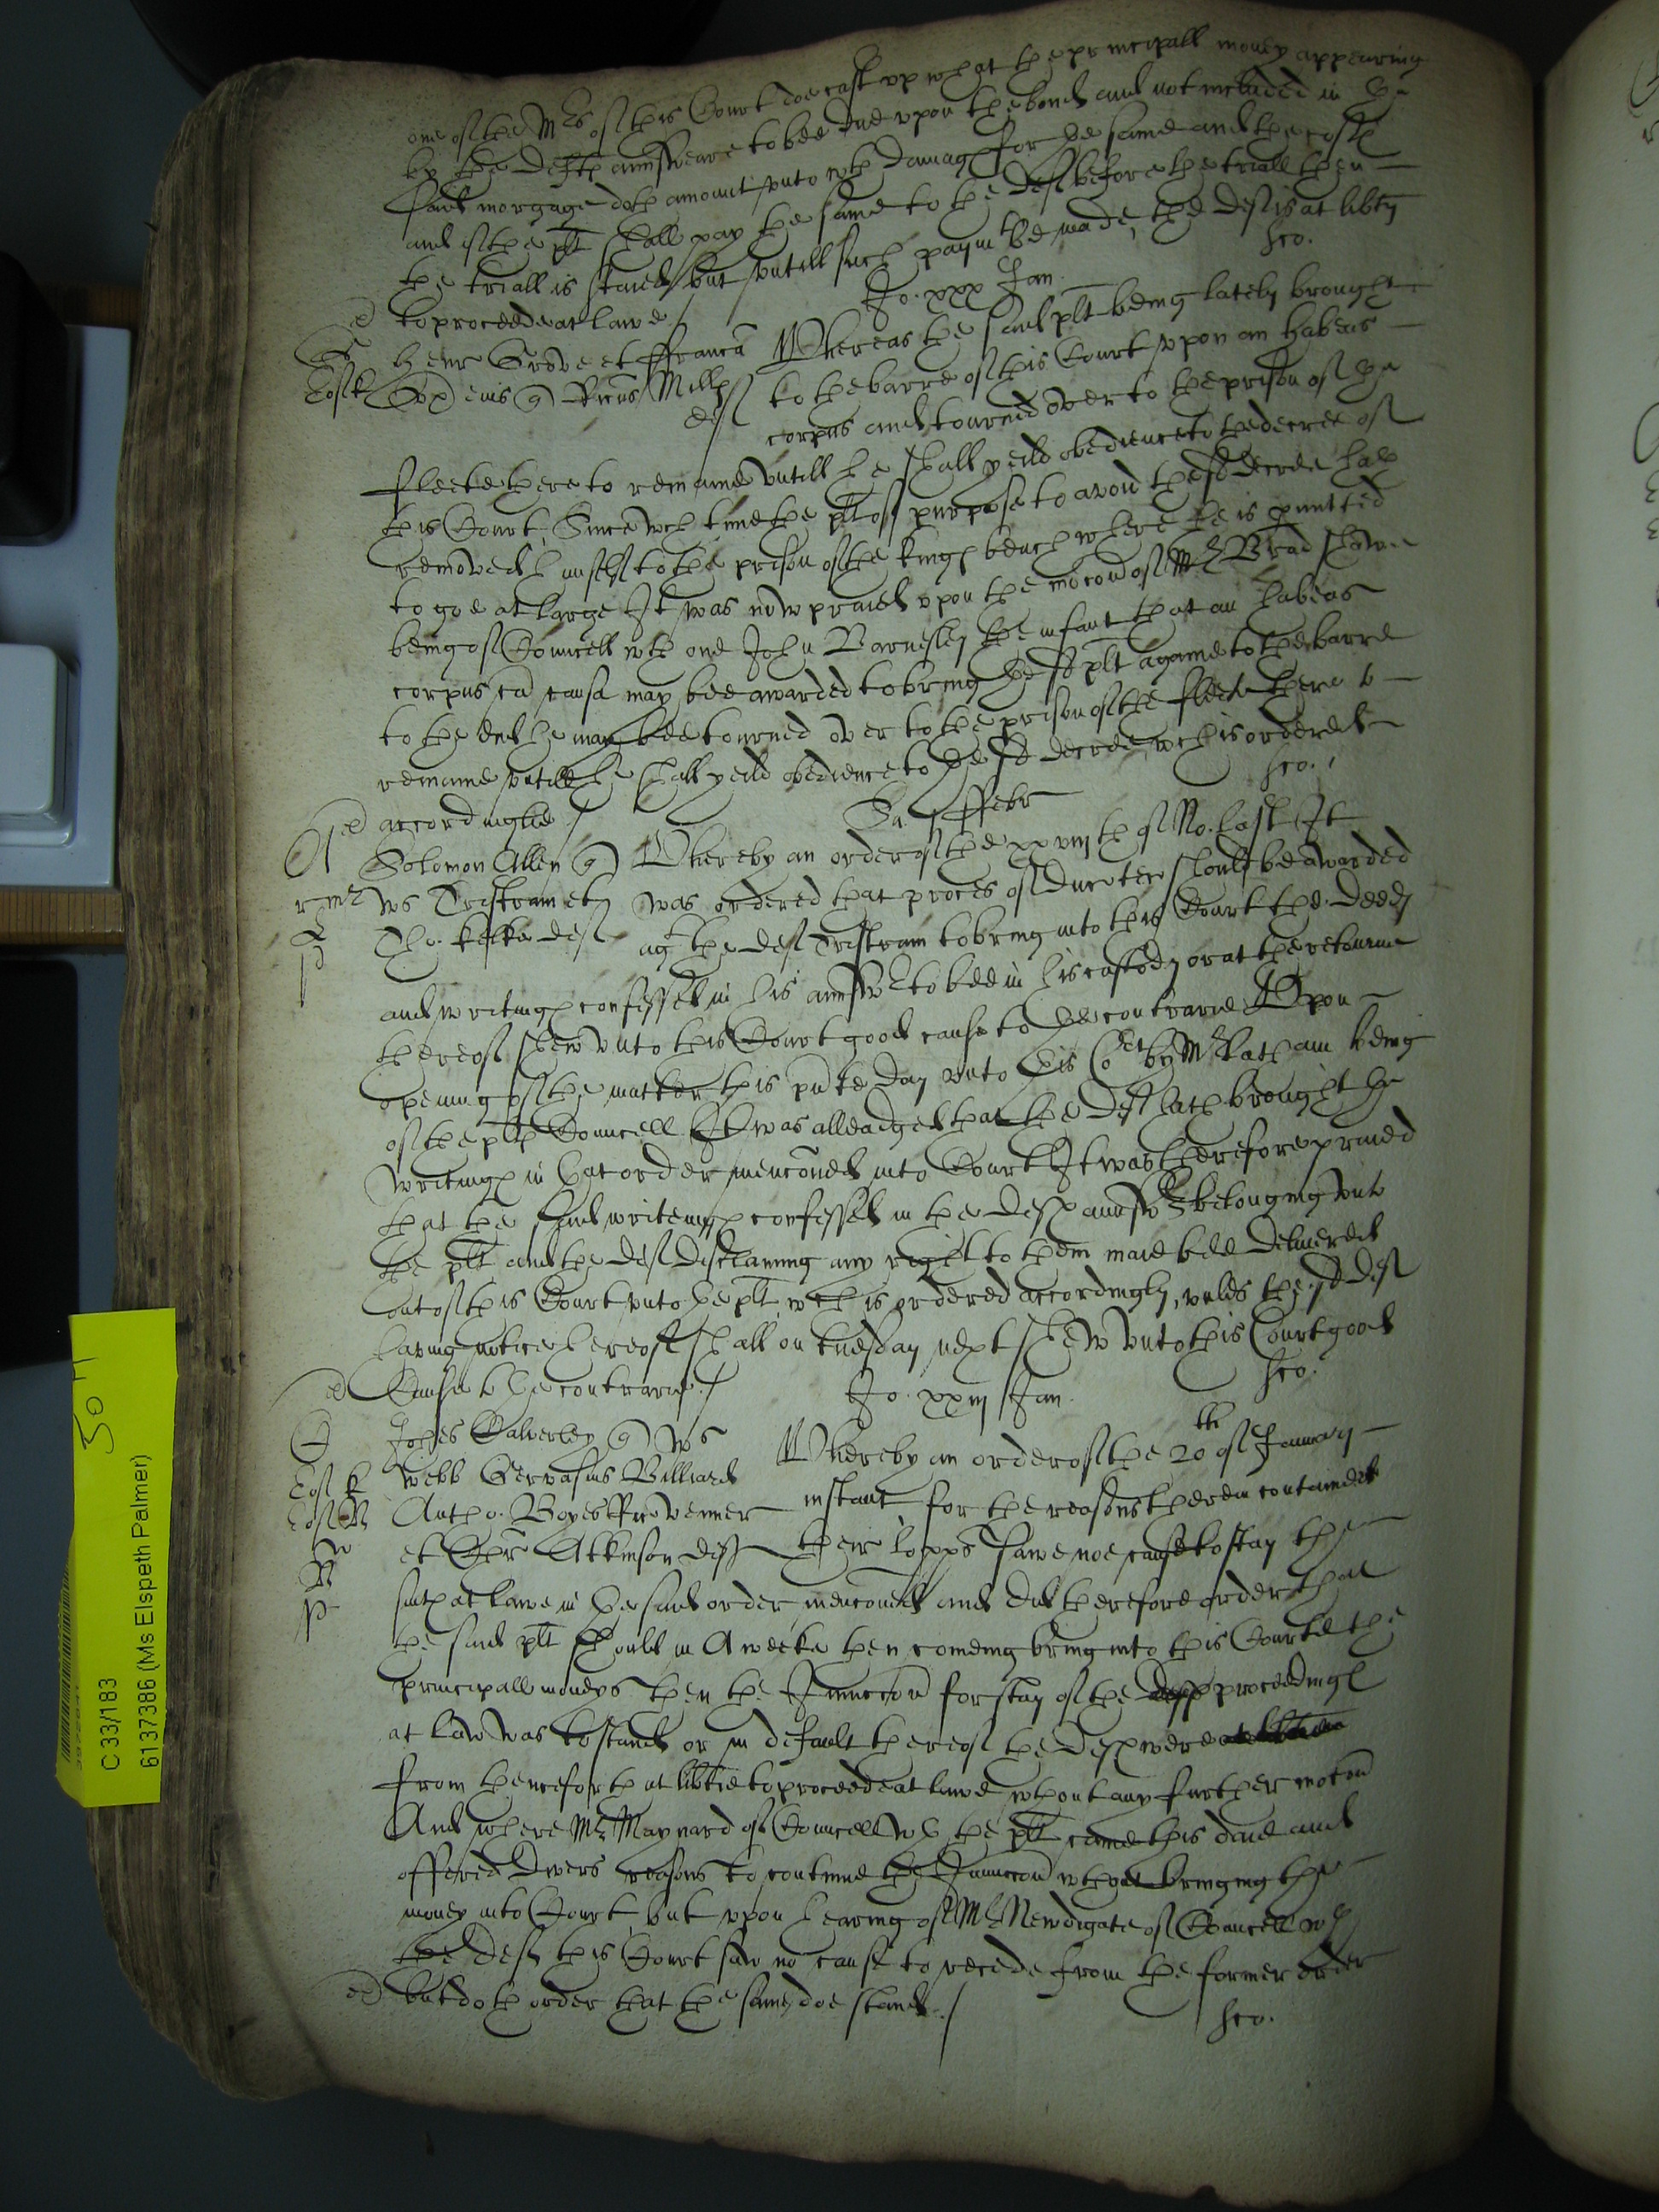 one of the Mrs of this Court doe cast upp what the principall money appearing
by the defts answeare to bee due upon the bond and not included in the
said morgage doth amount unto wth damage for the same and the costs
and if the plt shall pay the same to the def before the triall then
the triall is staied / but untill such paymt be made, the def is at libty
to proceede at lawe /
hco.
Jo. xxx Jan
Henr Grove et Francä
Whereas the said plt being lately brought
Ricus Mills
def
to the barre of this Court upon an habeas
corpus and tourned over to the prison of the
Fleete there to remaine untill he shall yeild obedience to the decree of
this Court, Since wch time the plt of purpose to avoid the sd decree hath
removed himself to the prison of the kings bench where he is pmitted
to goe at large It was now praied upon the mocon of Mr Bradshawe
being of Councell wth one John Barnesley the infant that an habeas
corpus cu causa may bee awarded to bring the sd plt againe to the barre
to the end he may bee tourned over to the prison of the fleete there to
remaine untill he shall yeild obedience to the sd decree, wch is ordered
accordinglie /
hco.
Sa. 1 ffebr
Solomon Allen q
Whereby an order of the xxviijth of No. last It
ws Tristram et
was ordered that proces of Duc tec should be awarded
Tho. kelke def
agt the def Tristram to bring into this Court the deeds
and writings confessed in his answr to bee in his custody or at the retourne
thereof shew unto this Court good cause to the contrarie Upon
opening of the matter this pnte day unto this Cort by Mr Latham being
of the plts Councell It was alleadged that the def hath brought the
writings in that order menconed into Court It was therefore praied
that the said writeings confessed in the defs answr belonging unto
the plt and the def disclaming any right to them maie bee delivered
out of this Court unto the plt wch is ordered accordingly, unles the sd def
having notice hereof shall on tuesday next shew unto this Court good
Cause to the contrarie. /
hco.
Jo. xxiij Jan.
Johes Calverley q ws
Whereby an order of the 20th of January
webb Gervasius Billiard
instant for the reasons therein contained
Antho. Boyes
their lopps sawe noe cause to stay the
et Atkinson defs
suite at lawe in the said order menconed and did therefore order that
the said plt should in A weeke then comeing bring into this Court the
principall moneys then the Iniunccon for stay of the defs proceedings
at law was to stand or in default thereof the defs were
from thenceforth at libtie to proceede at lawe wthout any further mocon
And where Mr Maynard of Councell wth the plt came this daie and
offered divers reasons to continue the Iniunccon wthout bringing the
money into Court, but upon hearing of Mr Newdigate of Councell wth
the defs this Court saw no cause to recede from the former order
but doth order that the same doe stand. /
hco.
C 33/183
6137386 (Ms Elspeth Palmer)